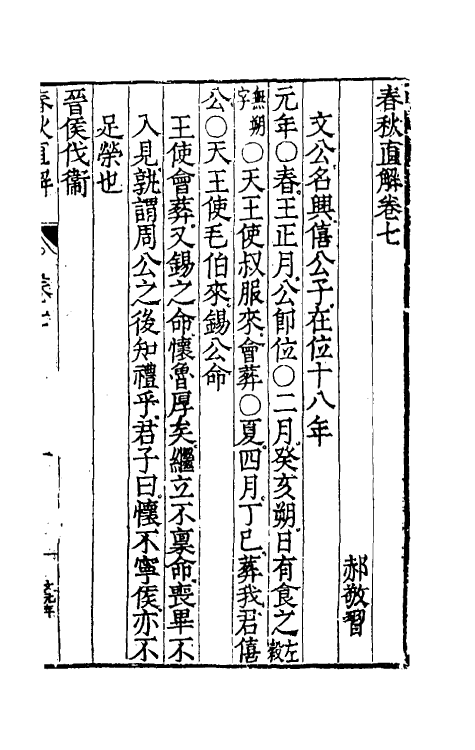 春秋直解卷七
郝敬習
文公名興僖公子在位十八年
元年〇春王正月公卽位〇二月癸亥朔日有食之左穀
無朔字〇天王使叔服來會葬〇夏四月丁巳葬我君僖
公〇天王使毛伯來錫公命
王使會葬又錫之命懷魯厚矣繼立不稟命喪畢不
入見孰謂周公之後知禮乎君子曰懷不寧侯亦不
足榮也
晉侯伐衞
春秋直解
卷七
一
文元年